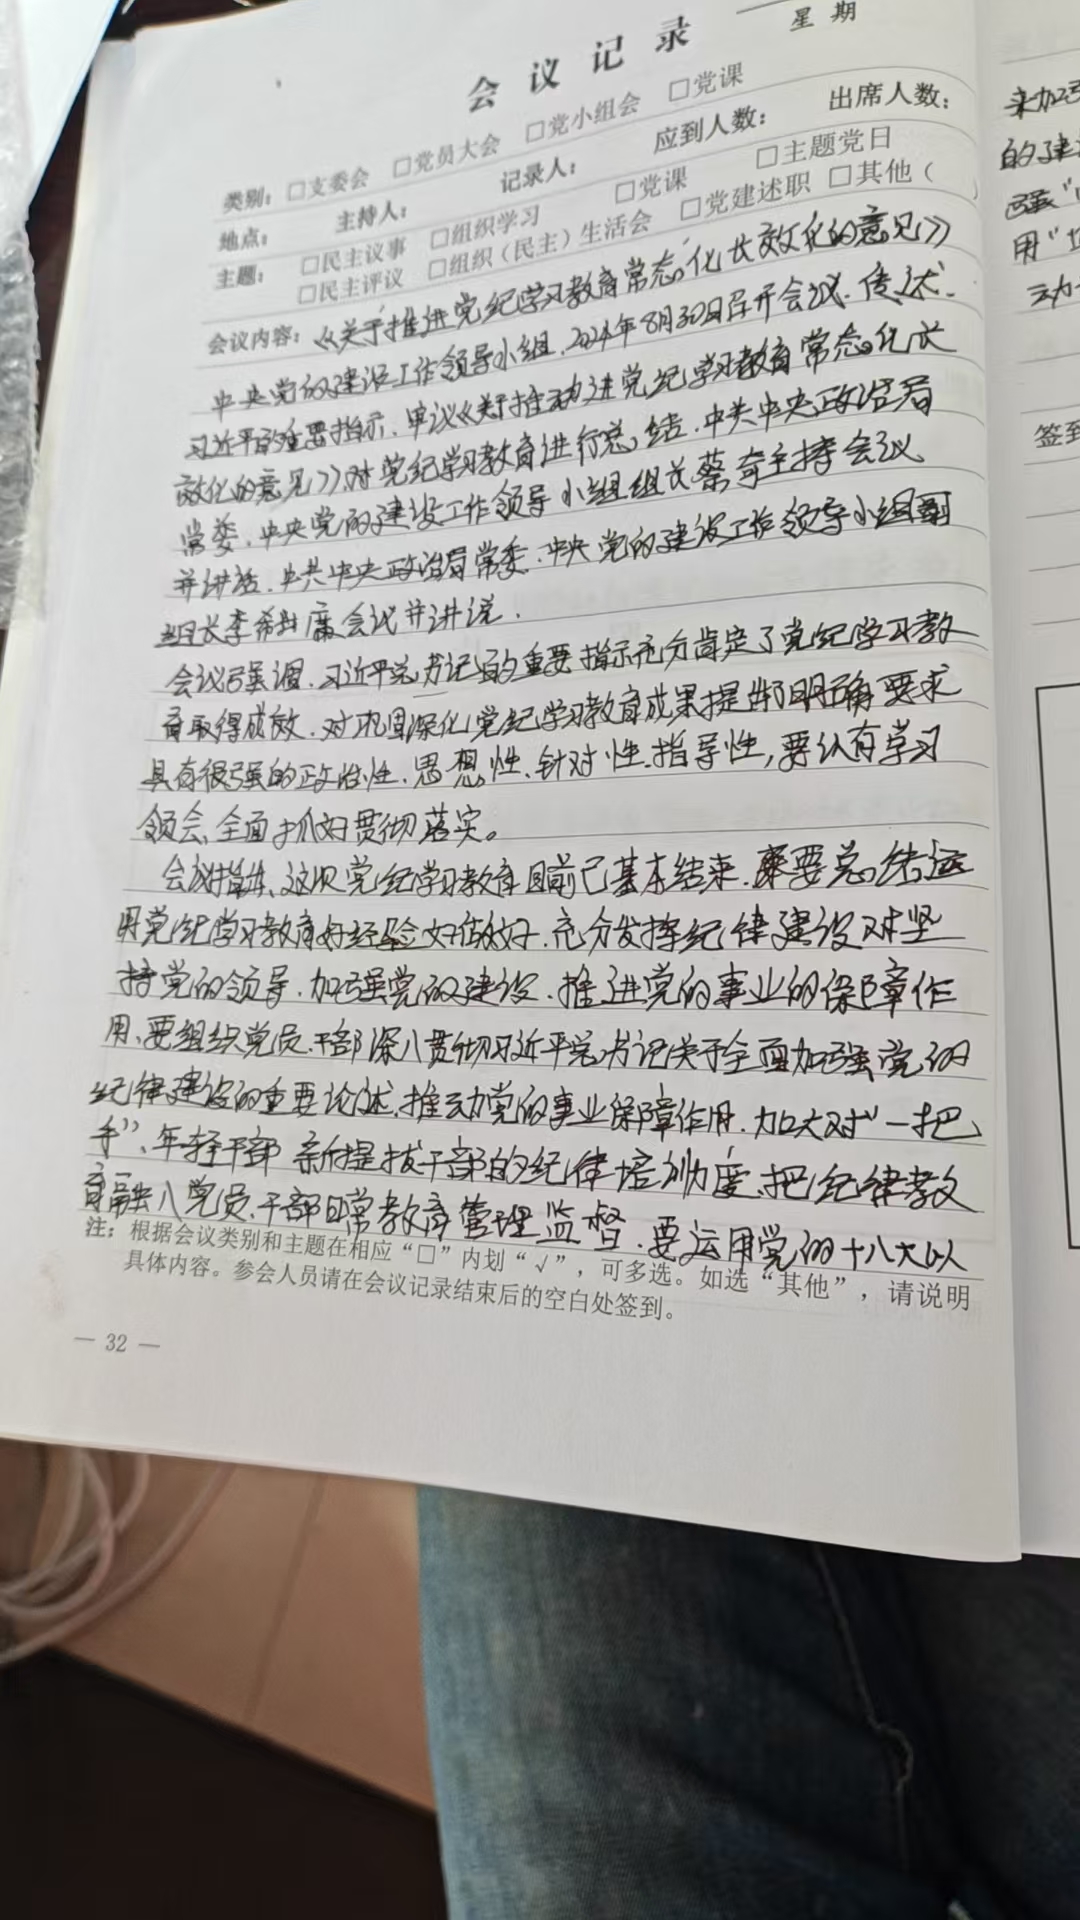 会议记录
星期
类别：□支委会 □党员大会 □党小组会 □党课
地点： 主持人： 记录人： 应到人数： 出席人数：
主题： □民主议事 □组织学习 □党课 □主题党日
□民主评议 □组织（民主）生活会 □党建述职 □其他（ ）
会议内容：《关于推进党纪学习教育常态化长效化的意见》
中央党的建设工作领导小组，2024年8月30日召开会议、传达、
习近平的重要指示、审议《关于推动进党纪学习教育常态化长
效化的意见》，对党纪学习教育进行总结、中共中央政治局
常委、中央党的建设工作领导小组组长蔡奇主持会议
并讲话、中共中央政治局常委、中央党的建设工作领导小组副
组长李希出席会议并讲说.
会议强调、习近平总书记的重要指示充分肯定了党纪学习教
育取得成效、对巩固深化党纪学习教育成果提出了明确要求
具有很强的政治性、思想性、针对性、指导性，要认有学习
领会、全面抓好贯彻落实。
会议指出、这次党纪学习教育目前已基本结束、要总结运
用党纪学习教育好经验好做好、充分发挥纪律建设对坚
持党的领导、加强党的建设、推进党的事业的保障作
用、要组织党员、干部深入贯彻习近平总书记关于全面加强党的
纪律建设的重要论述、推动党的事业保障作用、加大对“一把
手”、年轻干部 新提拔干部的纪律培训力度、把纪律教
育融入党员、干部日常教育管理监督、要运用党的十八大以
注：根据会议类别和主题在相应“□”内划“√”，可多选。如选“其他”，请说明
具体内容。参会人员请在会议记录结束后的空白处签到。
— 32 —
来加强
的建
强“
用“
动
签到